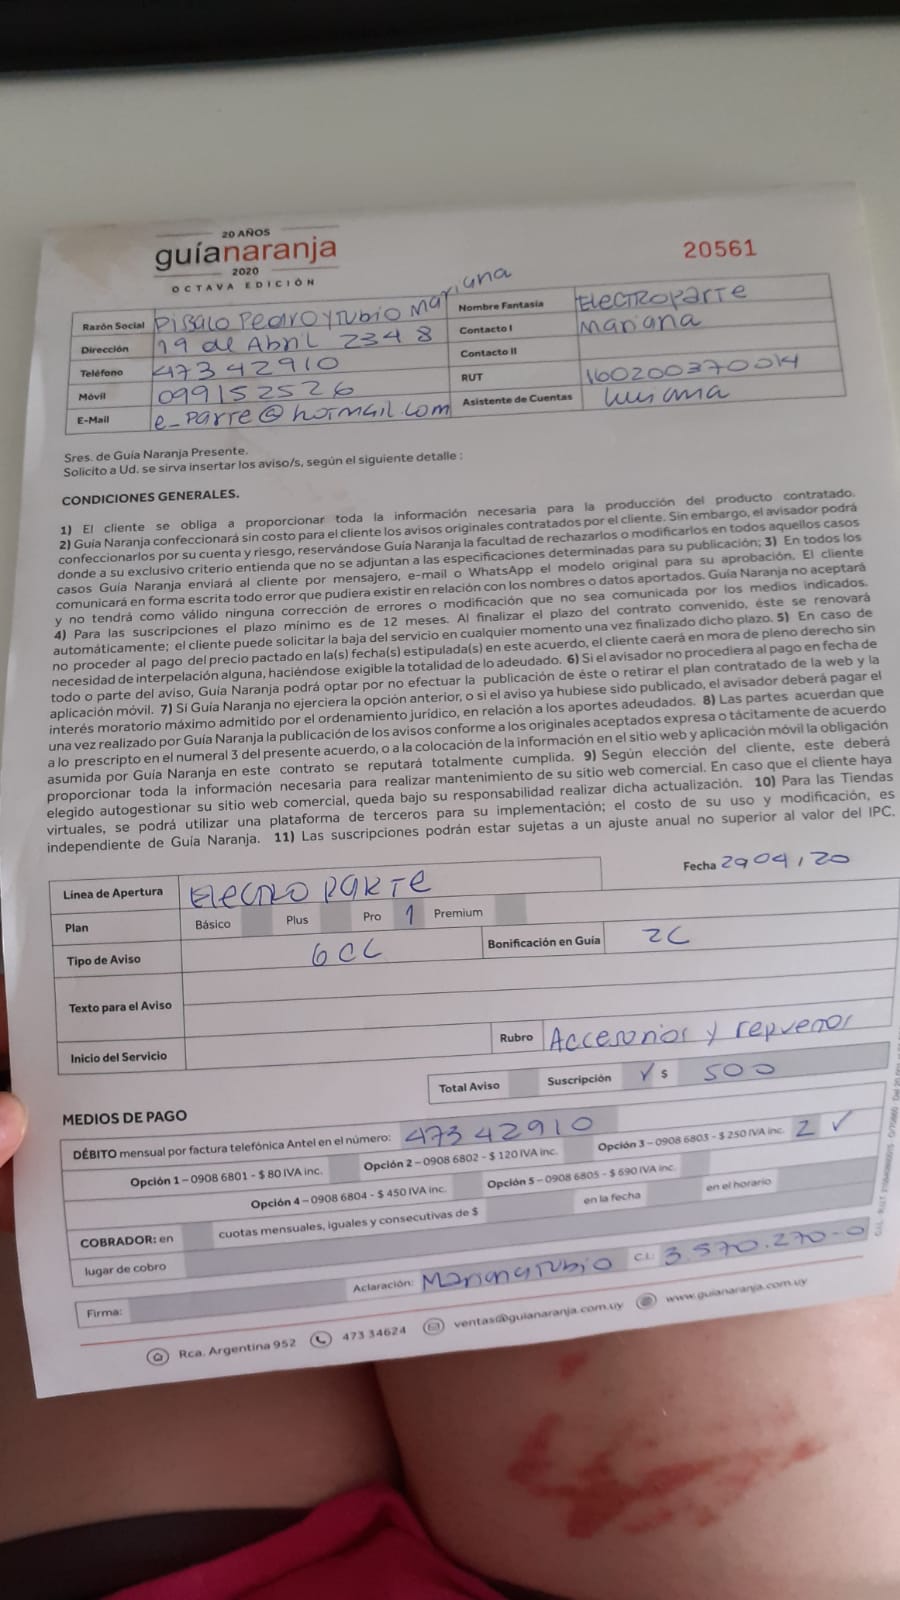 20 AÑOS
guíanaranja
2020
OCTAVA EDICIÓN
20561
Razón Social Pissalo Pedro y Tubio Mariana
Nombre Fantasía ElectroParte
Dirección 19 de Abril 2348
Contacto I Mariana
Teléfono 47342910
Contacto II
Móvil 099152526
RUT 160200370014
E-Mail e_parte@hotmail.com
Asistente de Cuentas
Sres. de Guía Naranja Presente.
Solicito a Ud. se sirva insertar los aviso/s, según el siguiente detalle :
CONDICIONES GENERALES.
1) El cliente se obliga a proporcionar toda la información necesaria para la producción del producto contratado.
2) Guía Naranja confeccionará sin costo para el cliente los avisos originales contratados por el cliente. Sin embargo, el avisador podrá
confeccionarlos por su cuenta y riesgo, reservándose Guía Naranja la facultad de rechazarlos o modificarlos en todos aquellos casos
donde a su exclusivo criterio entienda que no se adjuntan a las especificaciones determinadas para su publicación; 3) En todos los
casos Guía Naranja enviará al cliente por mensajero, e-mail o WhatsApp el modelo original para su aprobación. El cliente
comunicará en forma escrita todo error que pudiera existir en relación con los nombres o datos aportados. Guía Naranja no aceptará
y no tendrá como válido ninguna corrección de errores o modificación que no sea comunicada por los medios indicados.
4) Para las suscripciones el plazo mínimo es de 12 meses. Al finalizar el plazo del contrato convenido, éste se renovará
automáticamente; el cliente puede solicitar la baja del servicio en cualquier momento una vez finalizado dicho plazo. 5) En caso de
no proceder al pago del precio pactado en la(s) fecha(s) estipulada(s) en este acuerdo, el cliente caerá en mora de pleno derecho sin
necesidad de interpelación alguna, haciéndose exigible la totalidad de lo adeudado. 6) Si el avisador no procediera al pago en fecha de
todo o parte del aviso, Guía Naranja podrá optar por no efectuar la publicación de éste o retirar el plan contratado de la web y la
aplicación móvil. 7) Si Guía Naranja no ejerciera la opción anterior, o si el aviso ya hubiese sido publicado, el avisador deberá pagar el
interés moratorio máximo admitido por el ordenamiento jurídico, en relación a los aportes adeudados. 8) Las partes acuerdan que
una vez realizado por Guía Naranja la publicación de los avisos conforme a los originales aceptados expresa o tácitamente de acuerdo
a lo prescripto en el numeral 3 del presente acuerdo, o a la colocación de la información en el sitio web y aplicación móvil la obligación
asumida por Guía Naranja en este contrato se reputará totalmente cumplida. 9) Según elección del cliente, este deberá
proporcionar toda la información necesaria para realizar mantenimiento de su sitio web comercial. En caso que el cliente haya
elegido autogestionar su sitio web comercial, queda bajo su responsabilidad realizar dicha actualización. 10) Para las Tiendas
virtuales, se podrá utilizar una plataforma de terceros para su implementación; el costo de su uso y modificación, es
independiente de Guía Naranja. 11) Las suscripciones podrán estar sujetas a un ajuste anual no superior al valor del IPC.
Fecha 29 04/20
Línea de Apertura Electro Parte
Plan Básico Plus Pro 1 Premium
Tipo de Aviso 6CC Bonificación en Guía 2C
Texto para el Aviso
Inicio del Servicio Rubro Accesorios y repuestos
Total Aviso Suscripción ✓ $ 500
MEDIOS DE PAGO
DÉBITO mensual por factura telefónica Antel en el número: 47342910
Opción 1 – 0908 6801 - $ 80 IVA inc. Opción 2 – 0908 6802 - $ 120 IVA inc. Opción 3 – 0908 6803 - $ 250 IVA inc. 2 ✓
Opción 4 – 0908 6804 - $ 450 IVA inc. Opción 5 – 0908 6805 - $ 690 IVA inc.
COBRADOR: en cuotas mensuales, iguales y consecutivas de $ en la fecha en el horario
lugar de cobro
Firma: Aclaración: Mariana Tubio C.I.: 3.570.270-0
Rca. Argentina 952 473 34624 ventas@guianaranja.com.uy www.guianaranja.com.uy